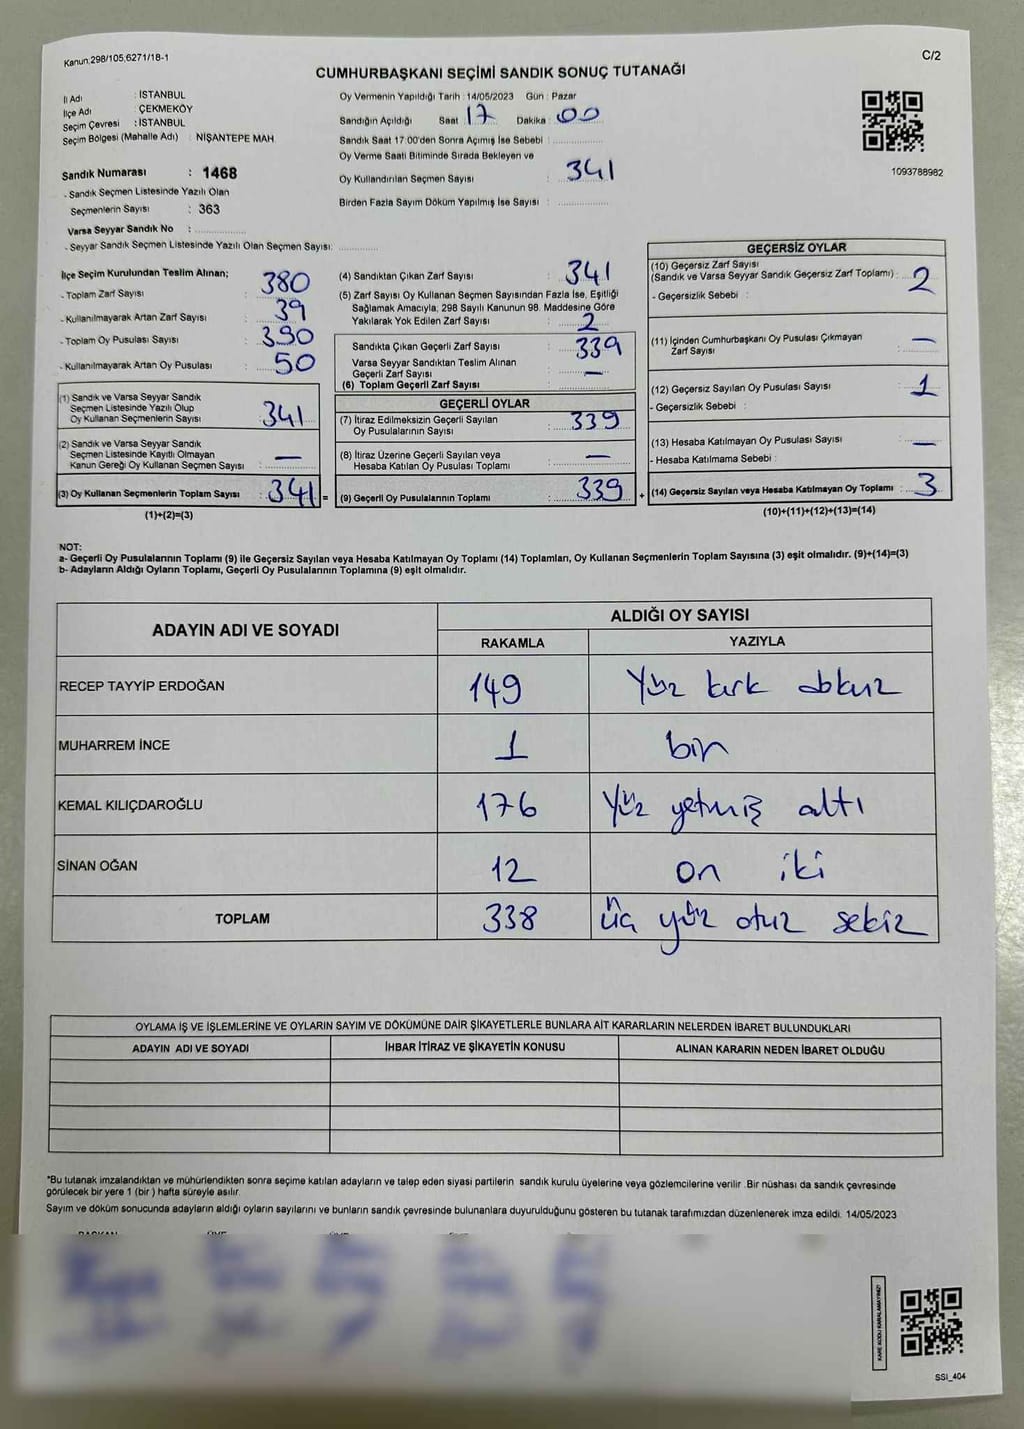 Kanun,298/105,6271/18-1
C/2
CUMHURBAŞKANI SEÇİMİ SANDIK SONUÇ TUTANAĞI
İl Adı : İSTANBUL
İlçe Adı : ÇEKMEKÖY
Seçim Çevresi : İSTANBUL
Seçim Bölgesi (Mahalle Adı) : NİŞANTEPE MAH.
Sandık Numarası : 1468
- Sandık Seçmen Listesinde Yazılı Olan
Seçmenlerin Sayısı : 363
Varsa Seyyar Sandık No :
- Seyyar Sandık Seçmen Listesinde Yazılı Olan Seçmen Sayısı:
Oy Vermenin Yapıldığı Tarih : 14/05/2023 Gün : Pazar
Sandığın Açıldığı Saat 17 Dakika : 00
Sandık Saat 17.00'den Sonra Açımış İse Sebebi :
Oy Verme Saati Bitiminde Sırada Bekleyen ve
Oy Kullandırılan Seçmen Sayısı : 341
Birden Fazla Sayım Döküm Yapılmış İse Sayısı :
1093788982
İlçe Seçim Kurulundan Teslim Alınan;
- Toplam Zarf Sayısı : 380
- Kullanılmayarak Artan Zarf Sayısı : 39
- Toplam Oy Pusulası Sayısı : 390
- Kullanılmayarak Artan Oy Pusulası : 50
(1) Sandık ve Varsa Seyyar Sandık
Seçmen Listesinde Yazılı Olup
Oy Kullanan Seçmenlerin Sayısı : 341
(2) Sandık ve Varsa Seyyar Sandık
Seçmen Listesinde Kayıtlı Olmayan
Kanun Gereği Oy Kullanan Seçmen Sayısı : —
(3) Oy Kullanan Seçmenlerin Toplam Sayısı : 341 =
(1)+(2)=(3)
(4) Sandıktan Çıkan Zarf Sayısı : 341
(5) Zarf Sayısı Oy Kullanan Seçmen Sayısından Fazla İse, Eşitliği
Sağlamak Amacıyla, 298 Sayılı Kanunun 98. Maddesine Göre
Yakılarak Yok Edilen Zarf Sayısı : 2
Sandıkta Çıkan Geçerli Zarf Sayısı : 339
Varsa Seyyar Sandıktan Teslim Alınan
Geçerli Zarf Sayısı : —
(6) Toplam Geçerli Zarf Sayısı :
GEÇERLİ OYLAR
(7) İtiraz Edilmeksizin Geçerli Sayılan
Oy Pusulalarının Sayısı : 339
(8) İtiraz Üzerine Geçerli Sayılan veya
Hesaba Katılan Oy Pusulası Toplamı : —
(9) Geçerli Oy Pusulalarının Toplamı : 339 +
GEÇERSİZ OYLAR
(10) Geçersiz Zarf Sayısı
(Sandık ve Varsa Seyyar Sandık Geçersiz Zarf Toplamı) : 2
- Geçersizlik Sebebi :
(11) İçinden Cumhurbaşkanı Oy Pusulası Çıkmayan
Zarf Sayısı : —
(12) Geçersiz Sayılan Oy Pusulası Sayısı : 1
- Geçersizlik Sebebi :
(13) Hesaba Katılmayan Oy Pusulası Sayısı : —
- Hesaba Katılmama Sebebi :
(14) Geçersiz Sayılan veya Hesaba Katılmayan Oy Toplamı : 3
(10)+(11)+(12)+(13)=(14)
NOT:
a- Geçerli Oy Pusulalarının Toplamı (9) ile Geçersiz Sayılan veya Hesaba Katılmayan Oy Toplamı (14) Toplamları, Oy Kullanan Seçmenlerin Toplam Sayısına (3) eşit olmalıdır. (9)+(14)=(3)
b- Adayların Aldığı Oyların Toplamı, Geçerli Oy Pusulalarının Toplamına (9) eşit olmalıdır.
ADAYIN ADI VE SOYADI
ALDIĞI OY SAYISI
RAKAMLA YAZIYLA
RECEP TAYYİP ERDOĞAN 149 Yüz kırk dokuz
MUHARREM İNCE 1 bir
KEMAL KILIÇDAROĞLU 176 Yüz yetmiş altı
SİNAN OĞAN 12 on iki
TOPLAM 338 üç yüz otuz sekiz
OYLAMA İŞ VE İŞLEMLERİNE VE OYLARIN SAYIM VE DÖKÜMÜNE DAİR ŞİKAYETLERLE BUNLARA AİT KARARLARIN NELERDEN İBARET BULUNDUKLARI
ADAYIN ADI VE SOYADI İHBAR İTİRAZ VE ŞİKAYETİN KONUSU ALINAN KARARIN NEDEN İBARET OLDUĞU
*Bu tutanak imzalandıktan ve mühürlendikten sonra seçime katılan adayların ve talep eden siyasi partilerin sandık kurulu üyelerine veya gözlemcilerine verilir. Bir nüshası da sandık çevresinde
görülecek bir yere 1 (bir) hafta süreyle asılır.
Sayım ve döküm sonucunda adayların aldığı oyların sayılarını ve bunların sandık çevresinde bulunanlara duyurulduğunu gösteren bu tutanak tarafımızdan düzenlenerek imza edildi. 14/05/2023
KARE KODU KARALAMAYINIZ!
SSI_404